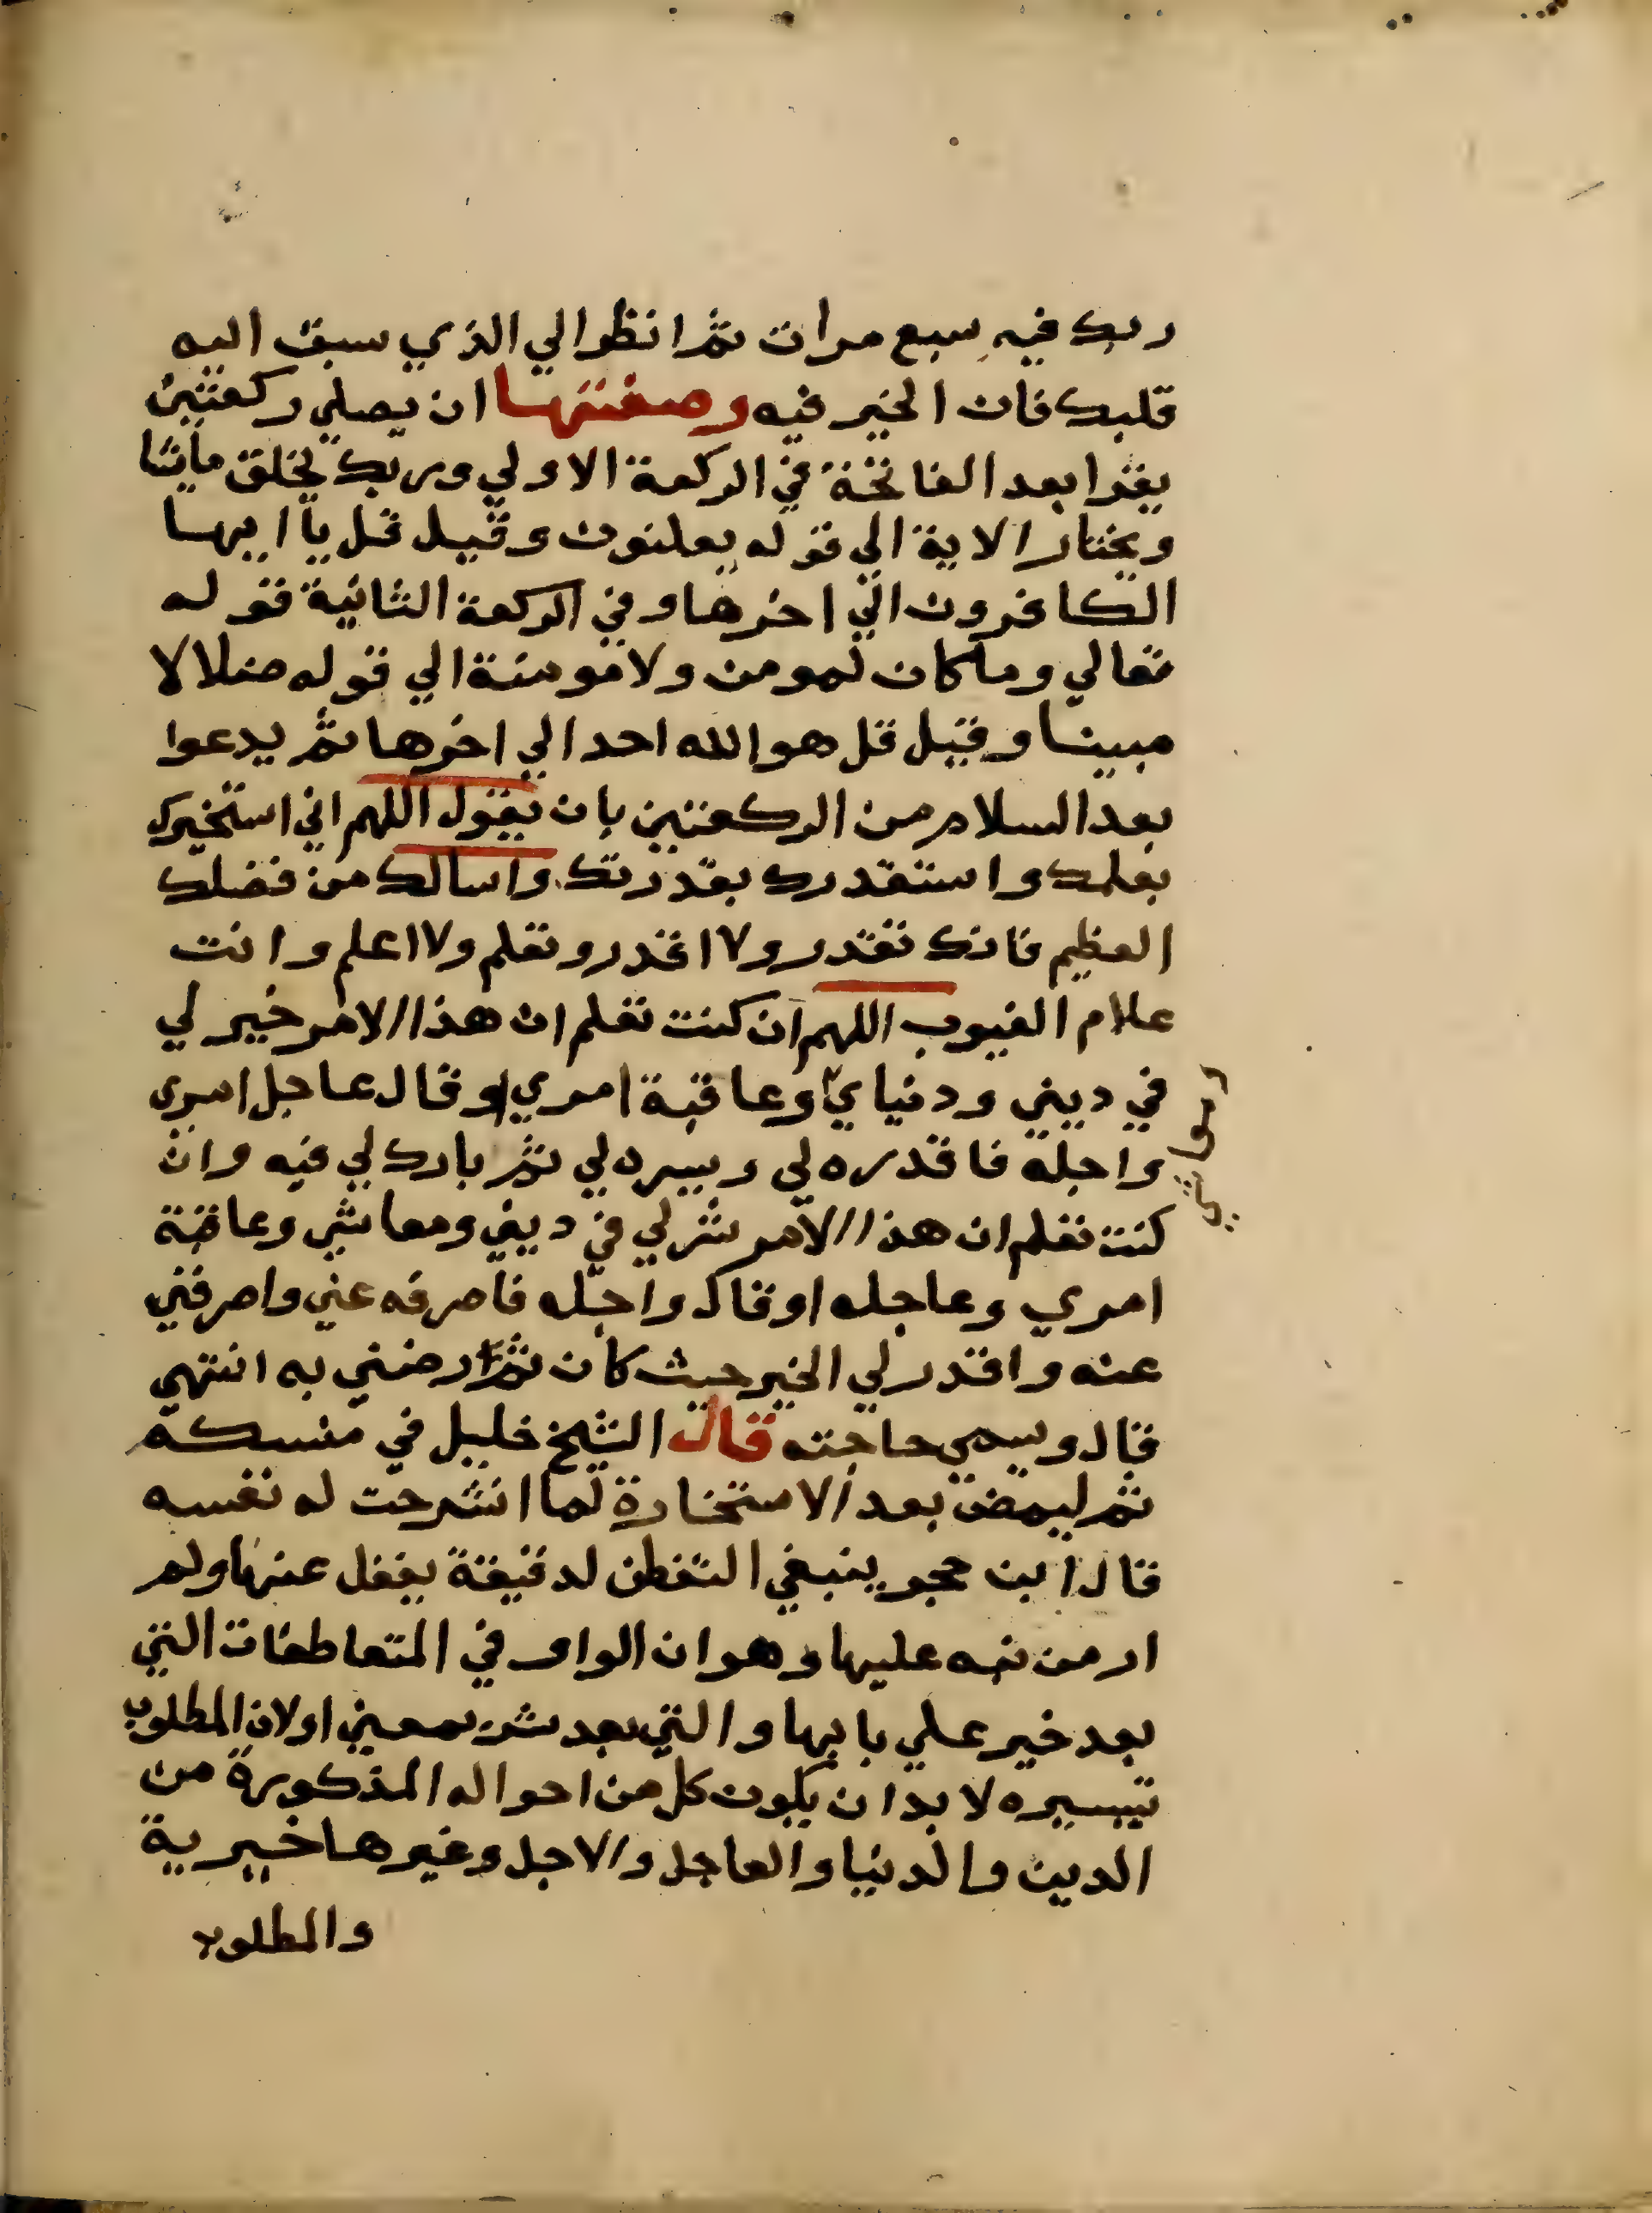 ربك فيه سبع مرات ثم انظر الي الذي سبق اليه
قلبك فان الخير فيه وصفتها ان يصلي ركعتين
يقرا بعد الفاتحة في الركعة الاولي وربك يخلق ما يشا
ويختار الاية الي قوله يعلنون وقيل قل يا ايها
الكافرون الي اخرها وفي الركعة الثانية قوله
تعالي وما كان لمومن ولا مومنة الي قوله ضلالا
مبينا وقيل قل هو الله احد الي اخرها ثم يدعوا
بعد السلام من الركعتين بان يقول اللهم اني استخيرك
بعلمك واستقدرك بقدرتك واسالك من فضلك
العظيم فانك تقدر ولا اقدر وتعلم ولا اعلم وانت
علام الغيوب اللهم ان كنت تعلم ان هذا الامر خير لي
في ديني ودنياي وعاقبة امري او قال عاجل امري
واجله فاقدره لي ويسره لي ثم بارك لي فيه وان
كنت تعلم ان هذا الامر شر لي في ديني ومعاشي وعاقبة
امري وعاجله او قال واجله فاصرفه عني واصرفني
عنه واقدر لي الخير حيث كان ثم ارضني به انتهي
قال ويسمي حاجته قال الشيخ خليل في منسكه
ثم ليمض بعد الاستخارة لما انشرحت له نفسه
قال ابن حجر ينبغي التفطن لدقيقة يغفل عنها ولم
ار من نبه عليها وهو ان الواو في المتعاطفات التي
بعد خير علي بابها والتي بعد شر بمعني او لان المطلوب
تيسيره لا بد ان يكون كل من احواله المذكورة من
الدين والدنيا والعاجل والاجل وغيرها خيرية
والمطلوب